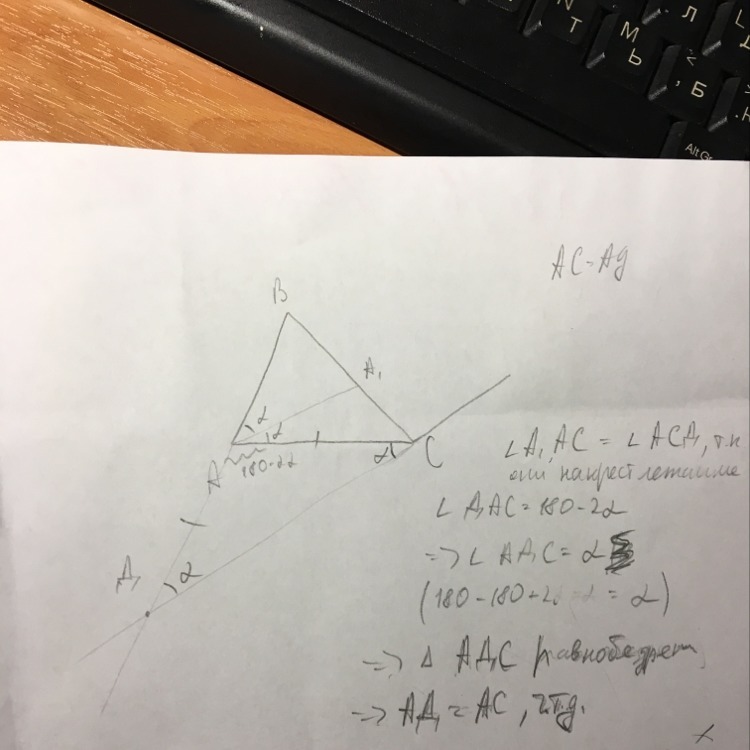 Л
Т
М
Ь
<
,
Б
Alt Gr
AC = AД
B
A₁
α
α
A
180-2α
α
C
Д₁
α
∠ A₁AC = ∠ ACД₁, т.к
они накрест лежащие
∠ Д₁AC = 180-2α
=> ∠ AД₁C = α
(180-180+2α-α = α)
=> Δ AД₁C равнобедрен
=> AД₁ = AC, ч.т.д.